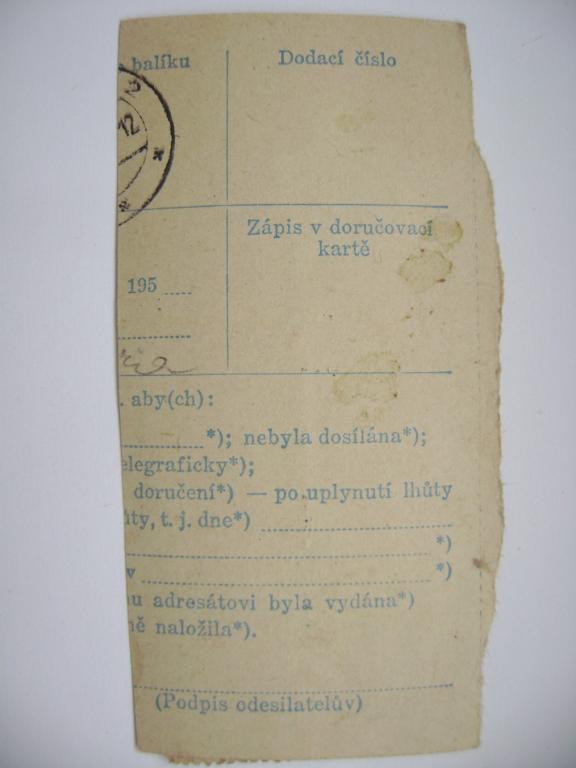 balíku
Dodací číslo
12
Zápis v doručovací
kartě
195
. aby(ch):
*); nebyla dosílána*);
elegraficky*);
doručení*) — po uplynutí lhůty
ůty, t. j. dne*)
*)
v *)
u adresátovi byla vydána*)
ě naložila*).
(Podpis odesilatelův)